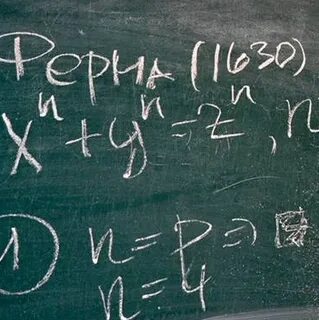 Ферма (1630)
xⁿ + yⁿ = zⁿ, n
1) n = p ⇒
n = 4